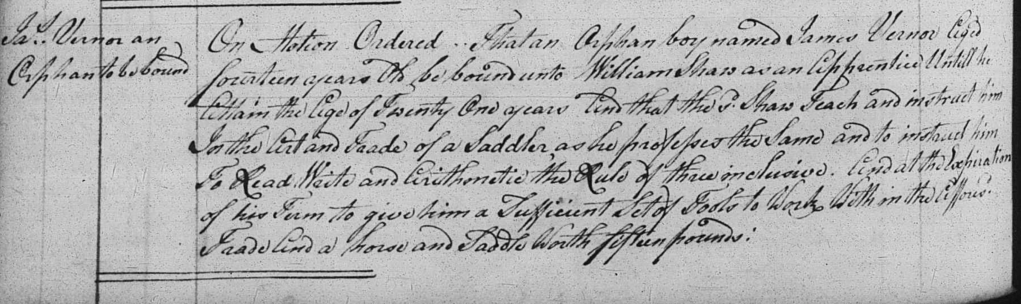 Jas. Vernor an
Orphan to be bound
On Motion Ordered .. That an Orphan boy named James Vernor Aged
fourteen years Old be bound unto William Shaw as an Apprentice Untill he
Attain the Age of Twenty One years And that the sd. Shaw Teach and instruct him
In the Art and Trade of a Saddler, as he professes the Same and to instruct him
To Read Write and Arithmetic the Rule of three inclusive. And at the Expiration
of his Term to give him a Sufficient Set of Tools to Work With in the Affores.d
Trade And a horse and Saddle Worth fifteen pounds.